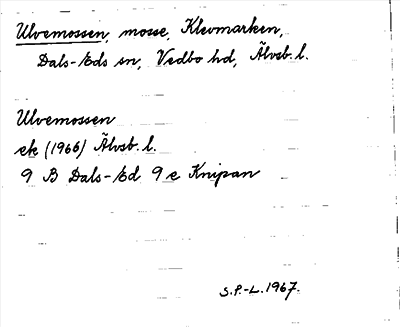 Ulvemossen, mosse, Klevmarken,
Dals-Eds sn, Vedbo hd, Älvsb. l.
Ulvemossen
ek (1966) Älvsb. l.
9 B Dals-Ed 9 e Knipan
S.P.-L. 1967.